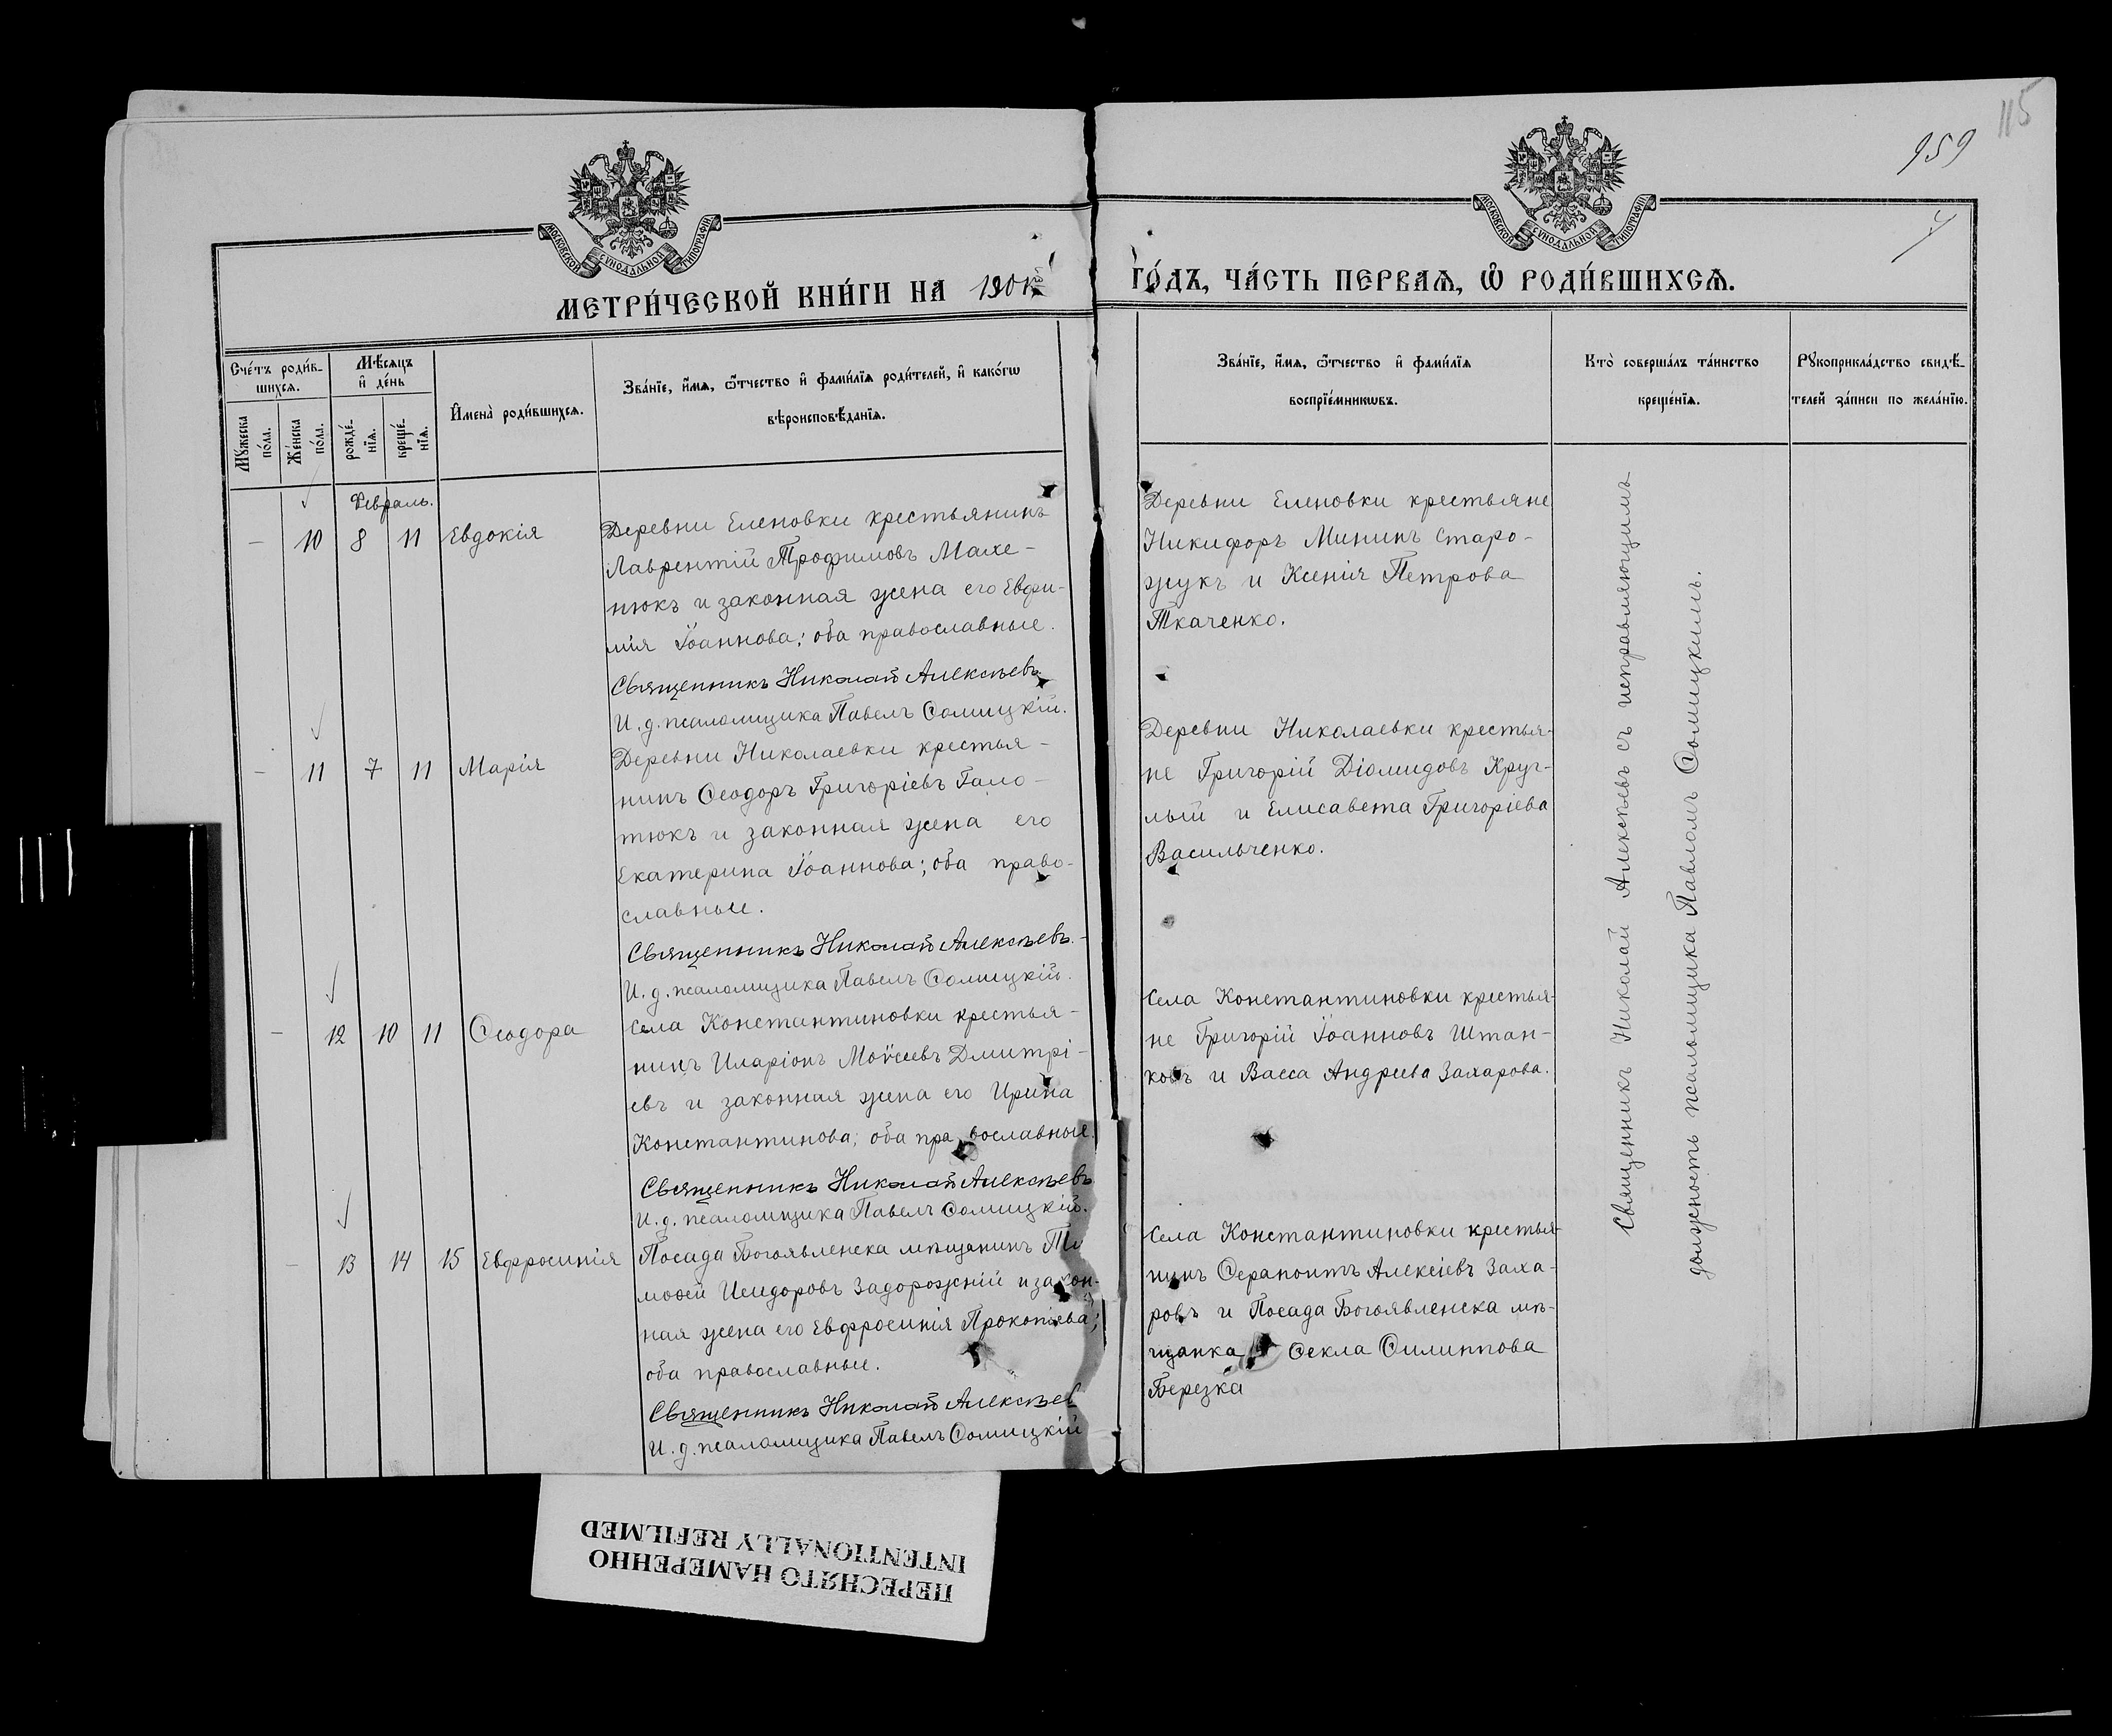 115
959
4
МОСКОВСКОЙ СУНОДАЛЬНОЙ ТИПОГРАФІИ
МОСКОВСКОЙ СУНОДАЛЬНОЙ ТИПОГРАФІИ
МЕТРИ́ЧЕСКОЙ КНИ́ГИ НА 190
ГО́ДЪ, ЧА́СТЬ ПЕРВАѦ, Ѡ҆ РОДИ́ВШИХСѦ.
Сче́тъ роди́в-
шихсѧ.
Мꙋ́жеска
по́ла.
Же́нска
по́ла.
Мѣ́сѧцъ
и҆ де́нь
рожде́-
нїѧ.
креще́-
нїѧ.
И҆мена̀ роди́вшихсѧ.
Зва́нїе, и҆́мѧ, ѻ҆́тчество и҆ фами́лїѧ роди́телей, и҆ како́гѡ
вѣроисповѣ́данїѧ.
Зва́нїе, и҆́мѧ, ѻ҆́тчество и҆ фами́лїѧ
воспрїе́мникѡвъ.
Кто̀ соверша́лъ та́инство
креще́нїѧ.
Рꙋкоприкла́дство свидѣ́-
телей за́писи по жела́нїю.
Февраль.
– 10 8 11 Евдокія
Деревни Еленовки крестьянинъ
Лаврентій Трофимовъ Махе-
нюкъ и законная жена его Евфи-
мія Іоаннова; оба православные.
Священникъ Николай Алексѣевъ
И. д. псаломщика Павелъ Сомицкій.
Деревни Еленовки крестьяне
Никифоръ Мининъ Старо-
жукъ и Ксенія Петрова
Ткаченко.
– 11 7 11 Марія
Деревни Николаевки крестья-
нинъ Ѳеодоръ Григоріевъ Гало-
тюкъ и законная жена его
Екатерина Іоаннова; оба право-
славные.
Священникъ Николай Алексѣевъ.
И. д. псаломщика Павелъ Сомицкій.
Деревни Николаевки крестья-
не Григорій Діомидовъ Круг-
лый и Елисавета Григоріева
Васильченко.
– 12 10 11 Ѳеодора
Села Константиновки крестья-
нинъ Иларіонъ Моѵсеевъ Дмитрі-
евъ и законная жена его Ирина
Константинова; оба православные.
Священникъ Николай Алексѣевъ
И. д. псаломщика Павелъ Сомицкій.
Села Константиновки крестья-
не Григорій Іоанновъ Штан-
ковъ и Васса Андреева Захарова.
– 13 14 15 Евфросинія
Посада Богоявленска мѣщанинъ Ти
моѳей Исидоровъ Задорожній и закон-
ная жена его Евфросинія Прокопіева;
оба православные.
Священникъ Николай Алексѣев
И. д. псаломщика Павелъ Сомицкій
Села Константиновки крестья-
нинъ Серапонтъ Алексіевъ Заха-
ровъ и Посада Богоявленска мѣ-
щанка Ѳекла Филиппова
Березка
Священникъ Николай Алексѣевъ съ исправляющимъ
должность псаломщика Павломъ Сомицкимъ.
ПЕРЕСНЯТО НАМЕРЕННО
INTENTIONALLY REFILMED